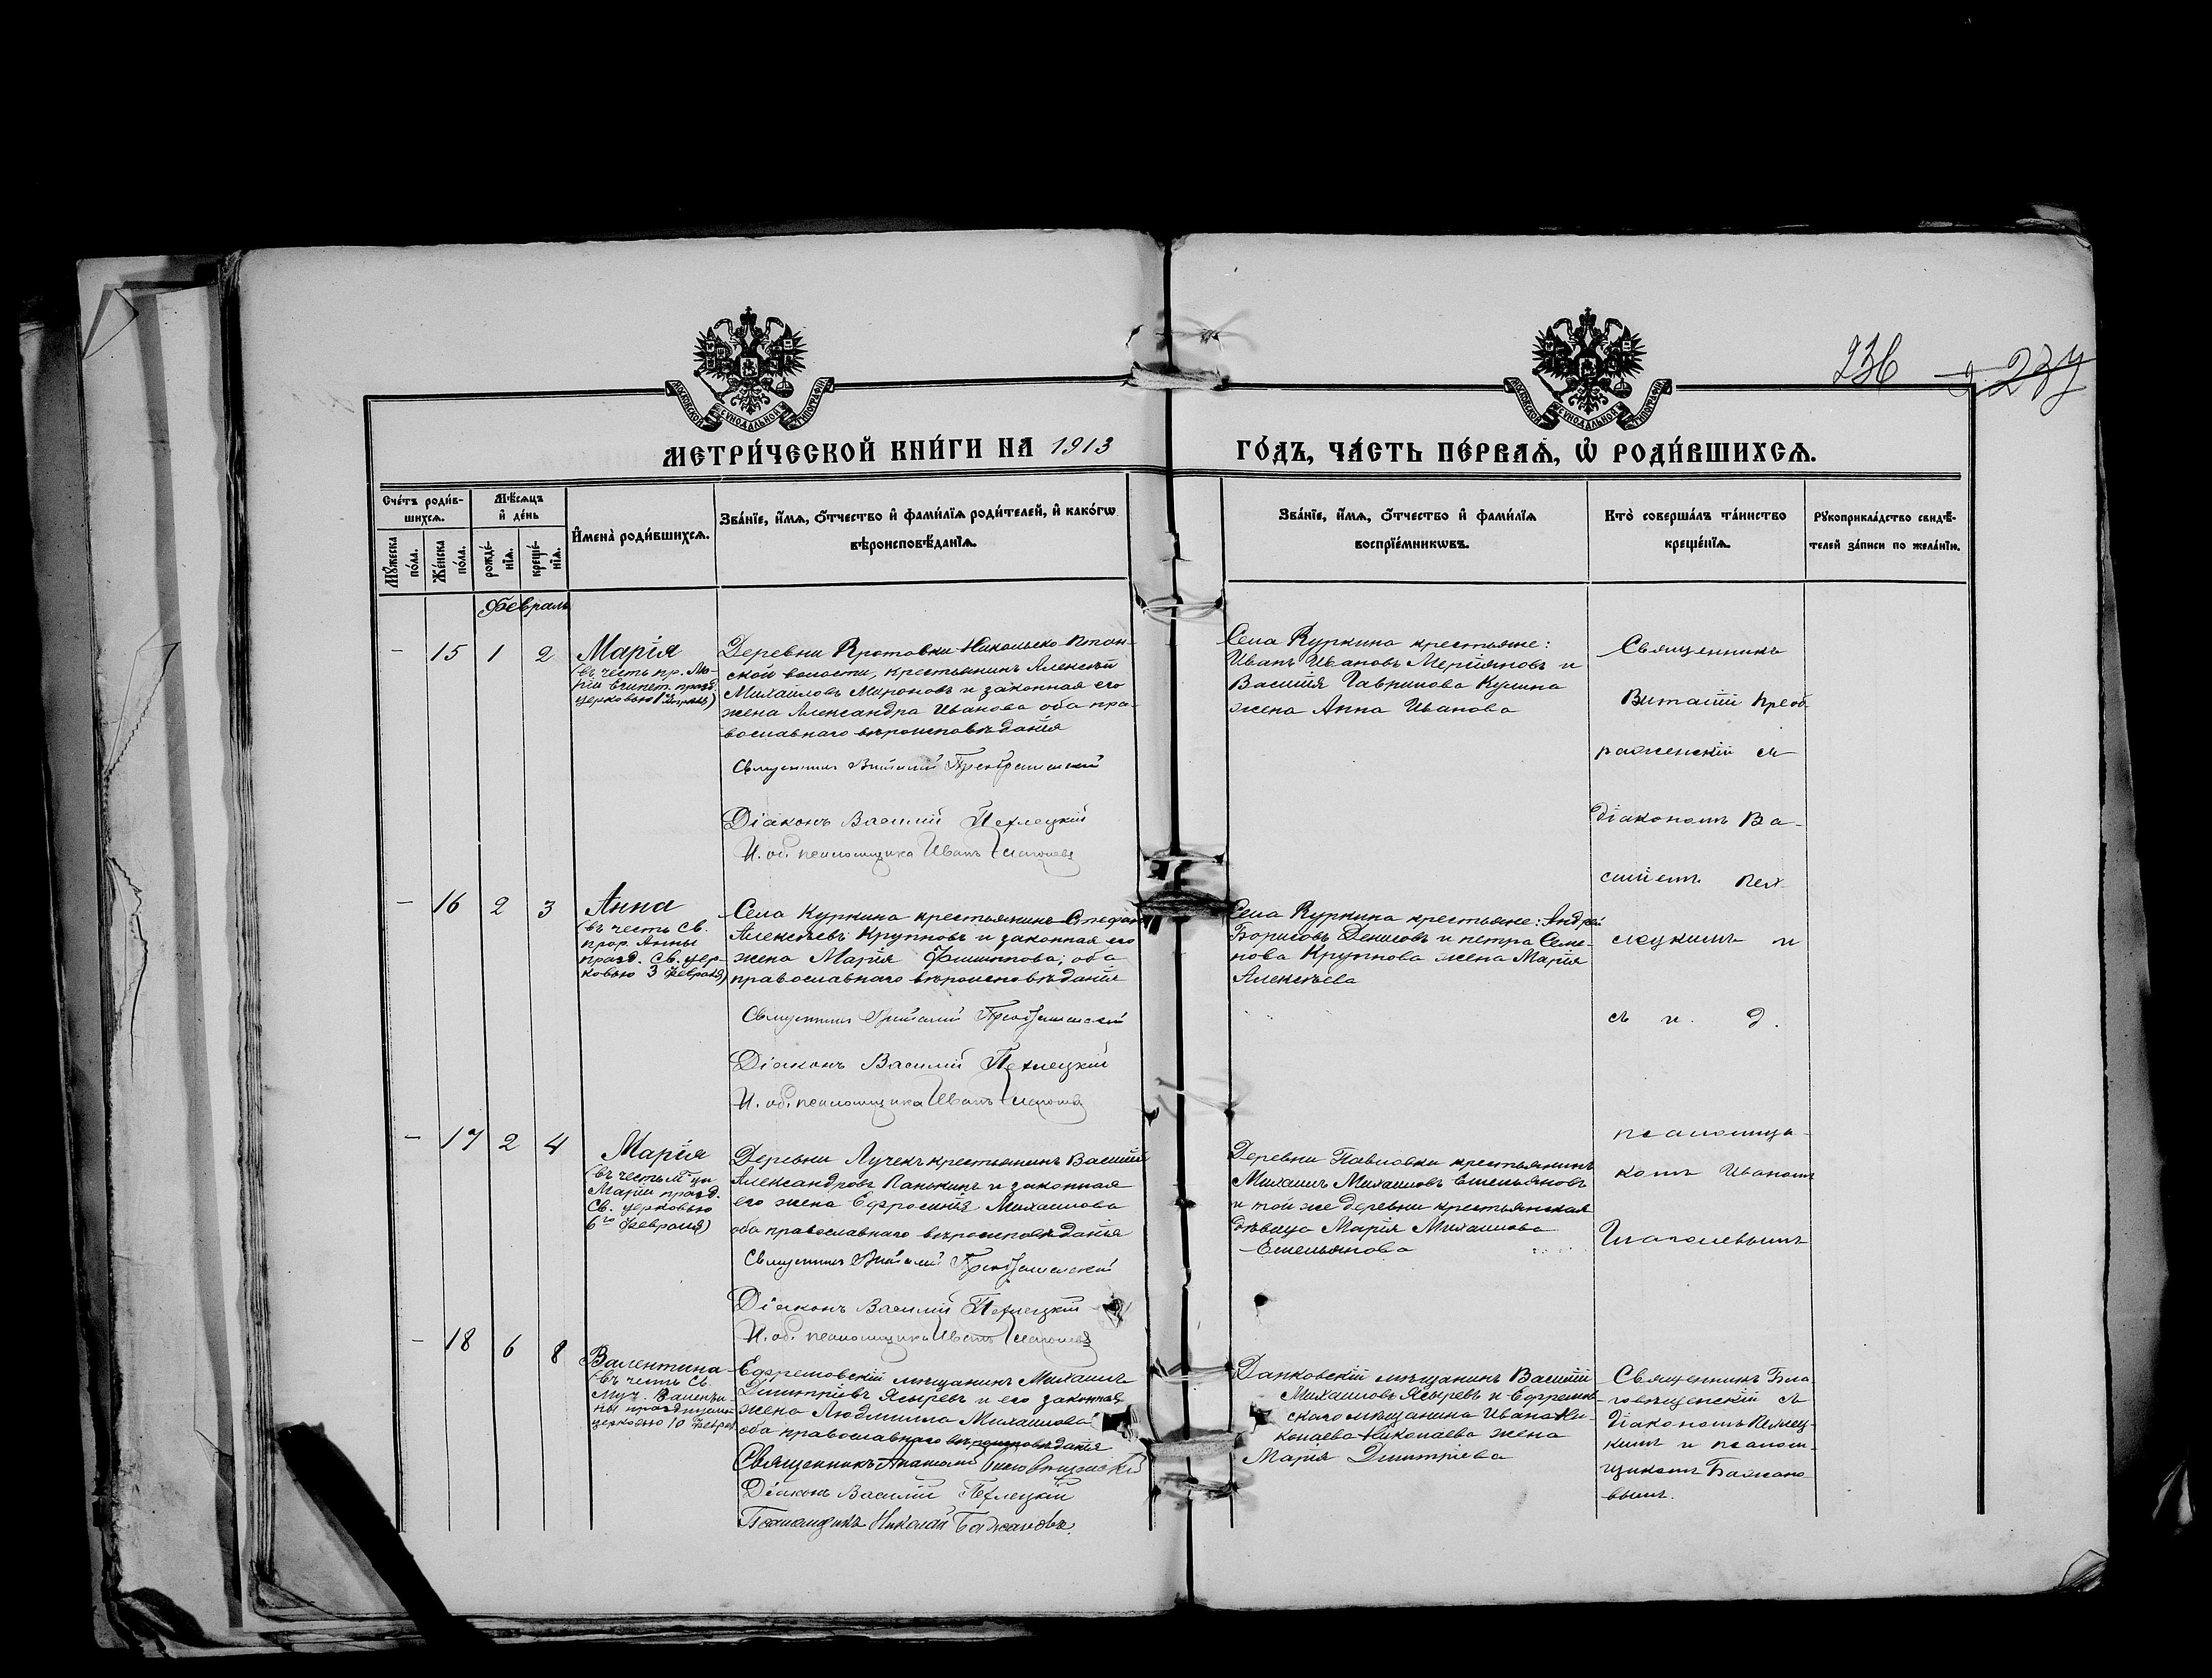 236 237
МОСКОВСКОЙ СѴНОДАЛЬНОЙ ТИПОГРАФІИ
МОСКОВСКОЙ СѴНОДАЛЬНОЙ ТИПОГРАФІИ
МЕТРИ́ЧЕСКОЙ КНИ́ГИ НА 1913 ГО́ДЪ, ЧА́СТЬ ПЕ́РВАѦ, Ѡ҆ РОДИ́ВШИХСѦ.
Сче́тъ роди́в-
шихсѧ.
Мѣ́сѧцъ
и҆ де́нь
Мꙋ́жеска по́ла.
Же́нска по́ла.
рожде́-
нїѧ.
креще́-
нїѧ.
И҆мена̀ роди́вшихсѧ.
Зва́нїе, и҆́мѧ, ѻ҆́тчество и҆ фами́лїѧ роди́телей, и҆ како́гѡ
вѣроисповѣ́данїѧ.
Зва́нїе, и҆́мѧ, ѻ҆́тчество и҆ фами́лїѧ
воспрїе́мникѡвъ.
Кто̀ соверша́лъ та́инство
креще́нїѧ.
Рꙋкоприкла́дство свидѣ́-
телей за́писи по жела́нїю.
Февраль
- 15 1 2
Марія
(въ честь пр. Ма-
ріи Египет. празд.
церковью 1 Апрѣля)
Деревни Кротовки Никольско-
ской волости, крестьянинъ Алексѣй
Михайловъ Мироновъ и законная его
жена Александра Иванова оба пра-
вославнаго вѣроисповѣданія
Священникъ Виталій Преображенскій
Діаконъ Василій Пехлецкій
И. об. псаломщика Иванъ Глаголевъ
Села Куркина крестьяне:
Иванъ Ивановъ и
Василія Гаврилова Кулина
жена Анна Иванова
Священникъ
Виталій Преоб-
раженскій съ
діакономъ Ва-
силіемъ Пех-
лецкимъ и
съ и. д.
псаломщи-
комъ Иваномъ
Глаголевымъ
- 16 2 3
Анна
(въ честь Св.
прор. Анны
празд. Св. цер-
ковью 3 февраля)
Села Куркина крестьянинъ Стефанъ
Алексѣевъ Крупновъ и законная его
жена Марія Филиппова, оба
православнаго вѣроисповѣданія
Священникъ Виталій Преображенскій
Діаконъ Василій Пехлецкій
И. об. псаломщика Иванъ Глаголевъ
Села Куркина крестьяне: Андрей
Борисовъ Денисовъ и петра Семе-
нова Крупнова жена Марія
Алексѣева
- 17 2 4
Марія
(въ честь М-цы
Маріи празд.
Св. церковью
6го февраля)
Деревни Лучекъ крестьянинъ Василій
Александровъ Панькинъ и законная
его жена Ефросинія Михаилова
оба православнаго вѣроисповѣданія
Священникъ Виталій Преображенскій
Діаконъ Василій Пехлецкій
И. об. псаломщика Иванъ Глаголевъ
Деревни Павловки крестьянинъ
Михаилъ Михаиловъ Емельяновъ
и той же деревни крестьянская
дѣвица Марія Михаилова
Емельянова
- 18 6 8
Валентина
(въ честь Св.
Муч. Валенти-
ны празднуемой
церковью 10 февр.)
Ефремовскій мѣщанинъ Михаилъ
Димитріевъ Ясыревъ и его законная
жена Людмила Михаилова
оба православнаго вѣроисповѣданія
Священникъ Анатолій Благовѣщенскій
Діаконъ Василій Пехлецкій
Псаломщикъ Николай Бажановъ.
Данковскій мѣщанинъ Василій
Михаиловъ Ясыревъ и Ефремов-
скаго мѣщанина Ивана Ни-
колаева Николаева жена
Марія Димитріева
Священникъ Бла-
говѣщенскій съ
діакономъ Пехлец-
кимъ и псалом-
щикомъ Бажано-
вымъ.